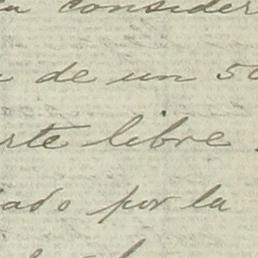 consider
de un 50
rte libre
ado por la